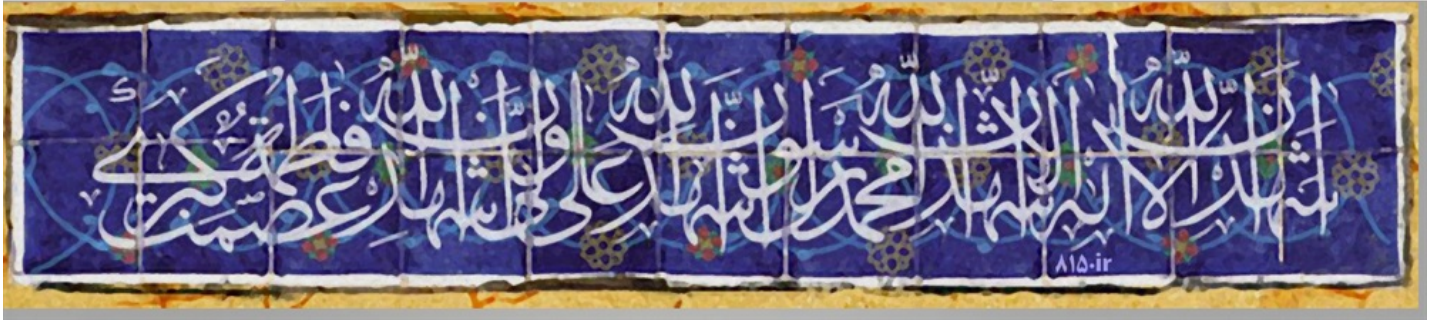 اشهد ان لا اله الا الله اشهد ان محمد رسول الله اشهد ان علی ولی الله اشهد ان فاطمة عصمة الله کبری
۸۱۵.ir